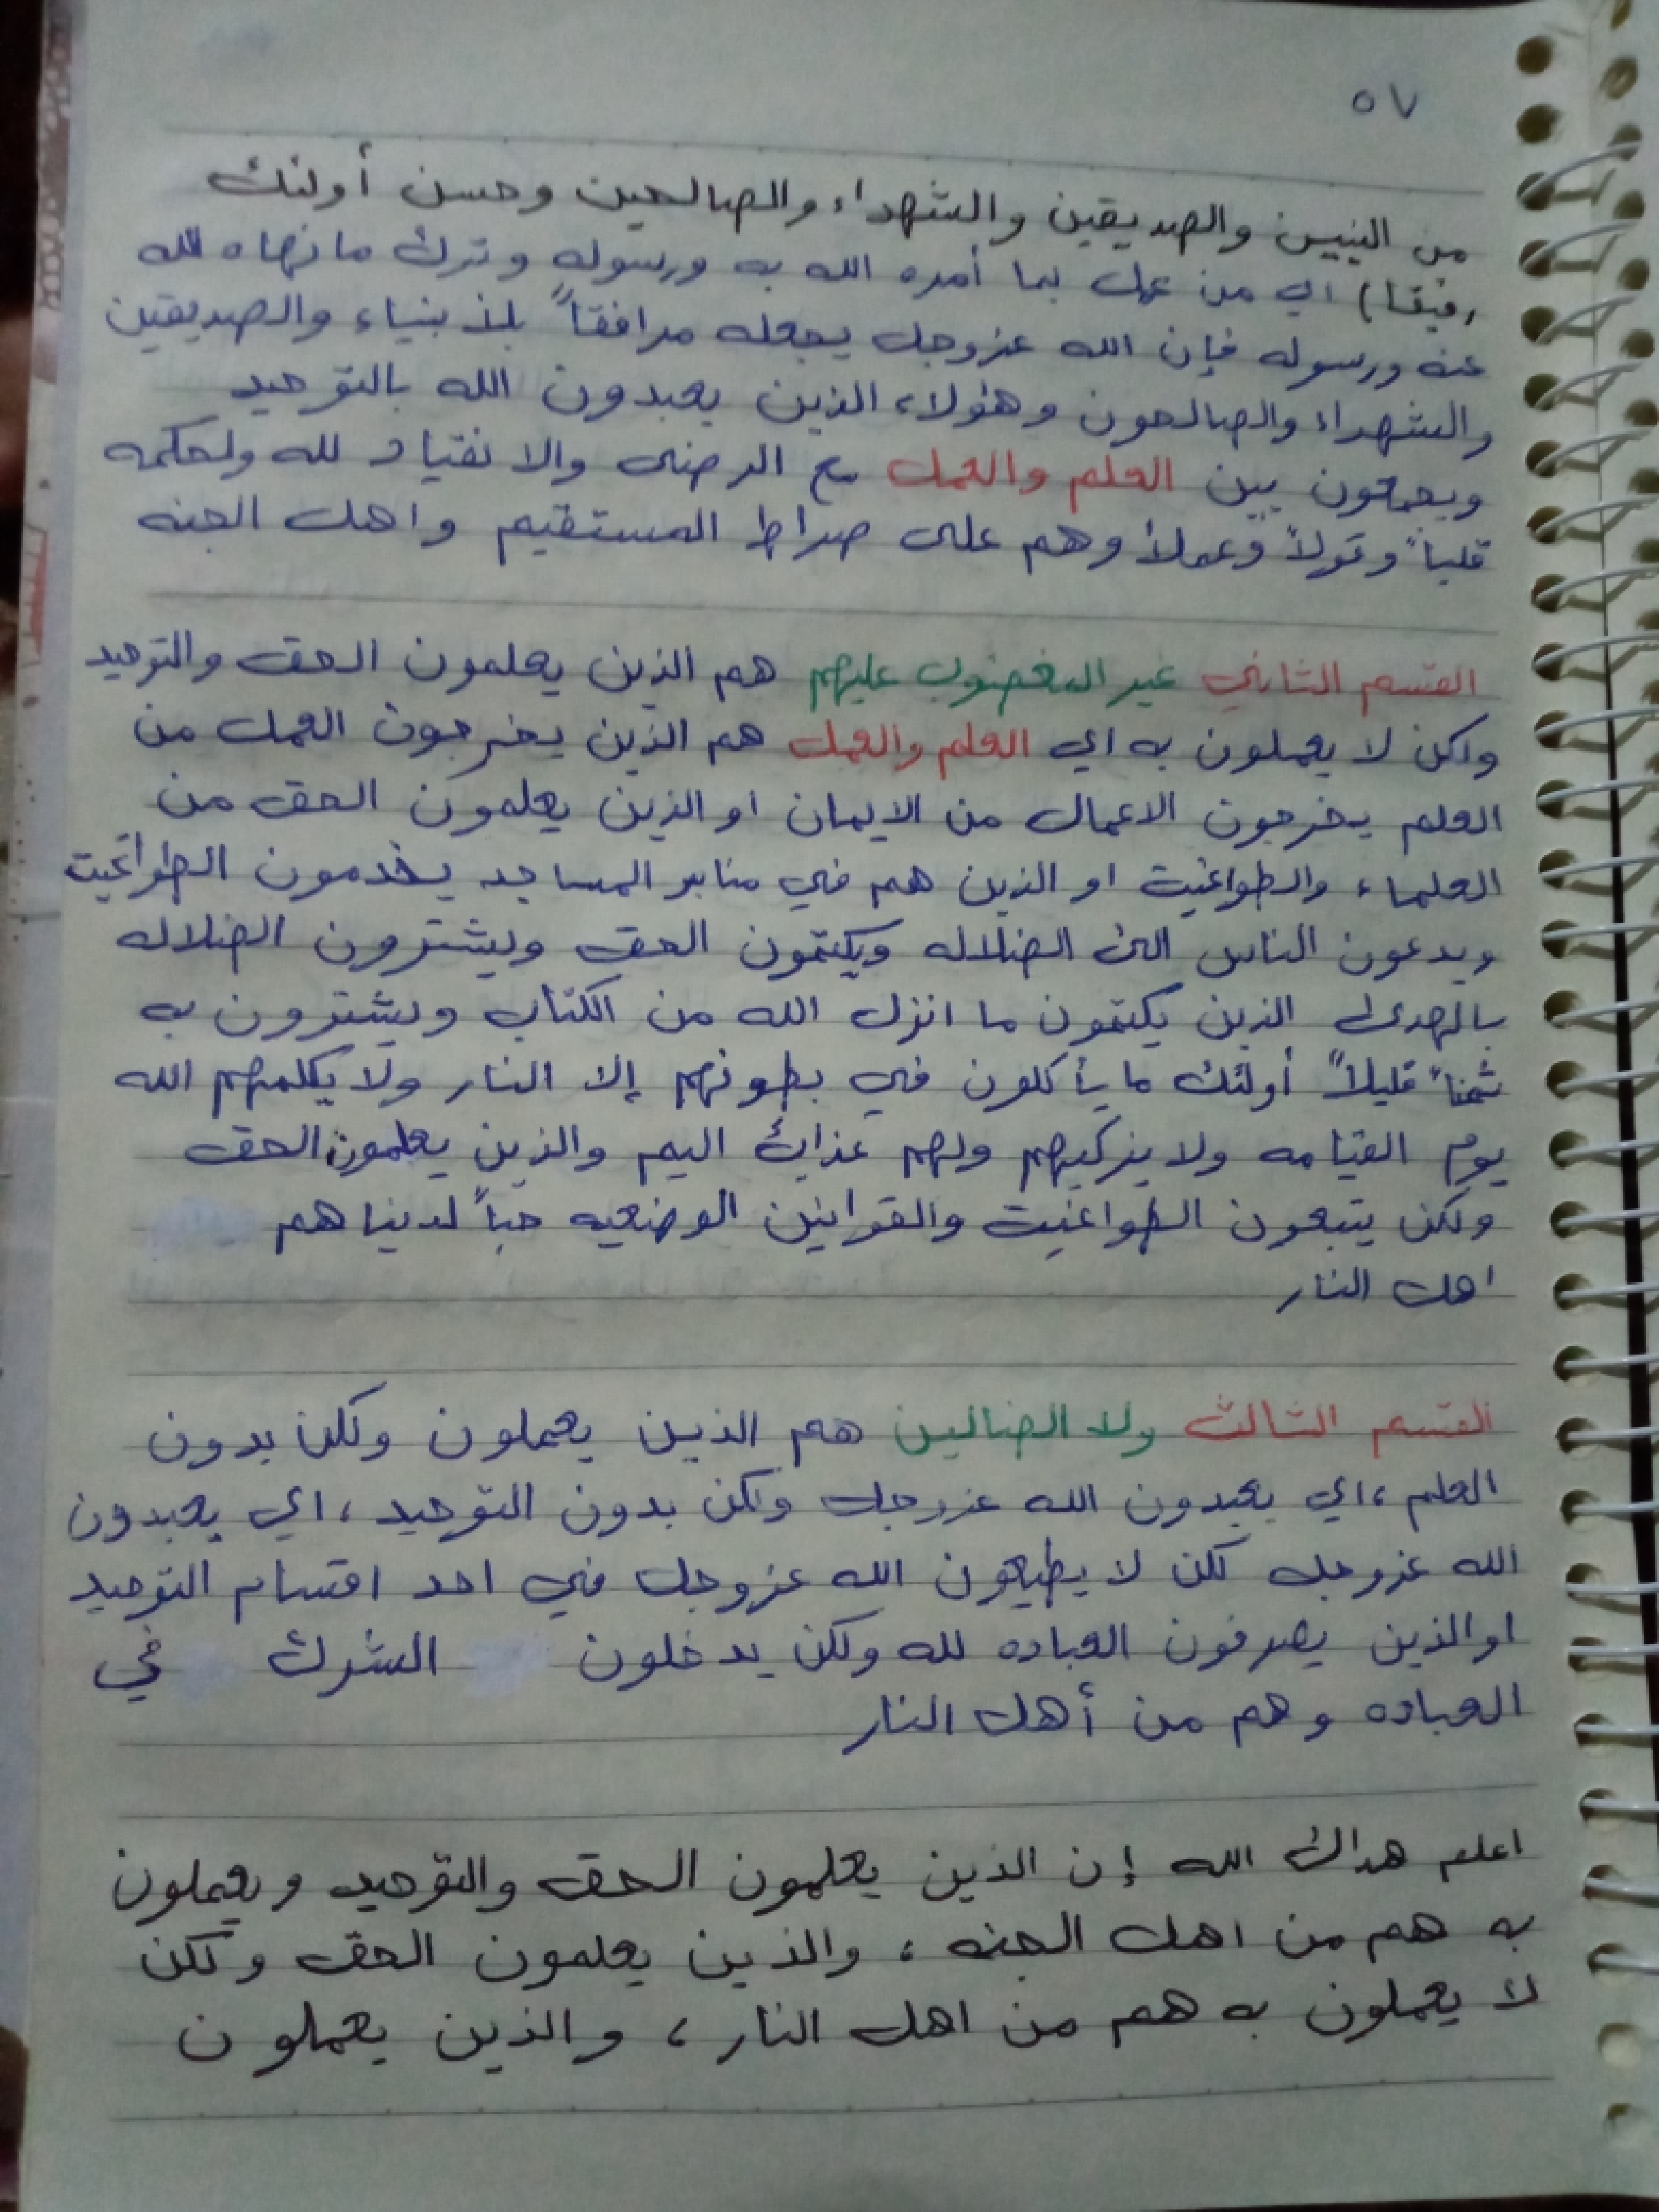 ٥٧
من النبيين والصديقين والشهداء والصالحين وحسن أولئك
رفيقا) اي من عمل بما أمره الله به ورسوله وترك ما نهاه الله
عنه ورسوله فإن الله عزوجل يجعله مرافقاً بلأنبياء والصديقين
والشهداء والصالحون وهؤلاء الذين يعبدون الله بالتوحيد
ويجمعون بين العلم والعمل مع الرضى والانقياد لله ولحكمه
قلباً وقولاً وعملاً وهم على صراط المستقيم واهل الجنه
القسم الثاني غير المغضوب عليهم هم الذين يعلمون الحق والتوحيد
ولكن لا يعملون به اي العلم والعمل هم الذين يخرجون العمل من
العلم يخرجون الاعمال من الايمان او الذين يعلمون الحق من
العلماء والطواغيت او الذين هم في منابر المساجد يخدمون الطواغيت
ويدعون الناس الى الضلاله ويكتمون الحق ويشترون الضلاله
بالهدى الذين يكتمون ما انزل الله من الكتاب ويشترون به
ثمناً قليلاً أولئك ما يأكلون في بطونهم إلا النار ولا يكلمهم الله
يوم القيامه ولا يزكيهم ولهم عذابٌ اليم والذين يعلمون الحق
ولكن يتبعون الطواغيت والقوانين الوضعيه حباً لديناهم
اهل النار
القسم الثالث ولا الضالين هم الذين يعملون ولكن بدون
العلم ، اي يعبدون الله عزوجل ولكن بدون التوحيد ، اي يعبدون
الله عزوجل لكن لا يطيعون الله عزوجل في احد اقسام التوحيد
او الذين يصرفون العباده لله ولكن يدخلون الشرك في
العباده وهم من أهل النار
اعلم هداك الله إن الذين يعلمون الحق والتوحيد ويعملون
به هم من اهل الجنه ، والذين يعلمون الحق ولكن
لا يعملون به هم من اهل النار ، والذين يعملون